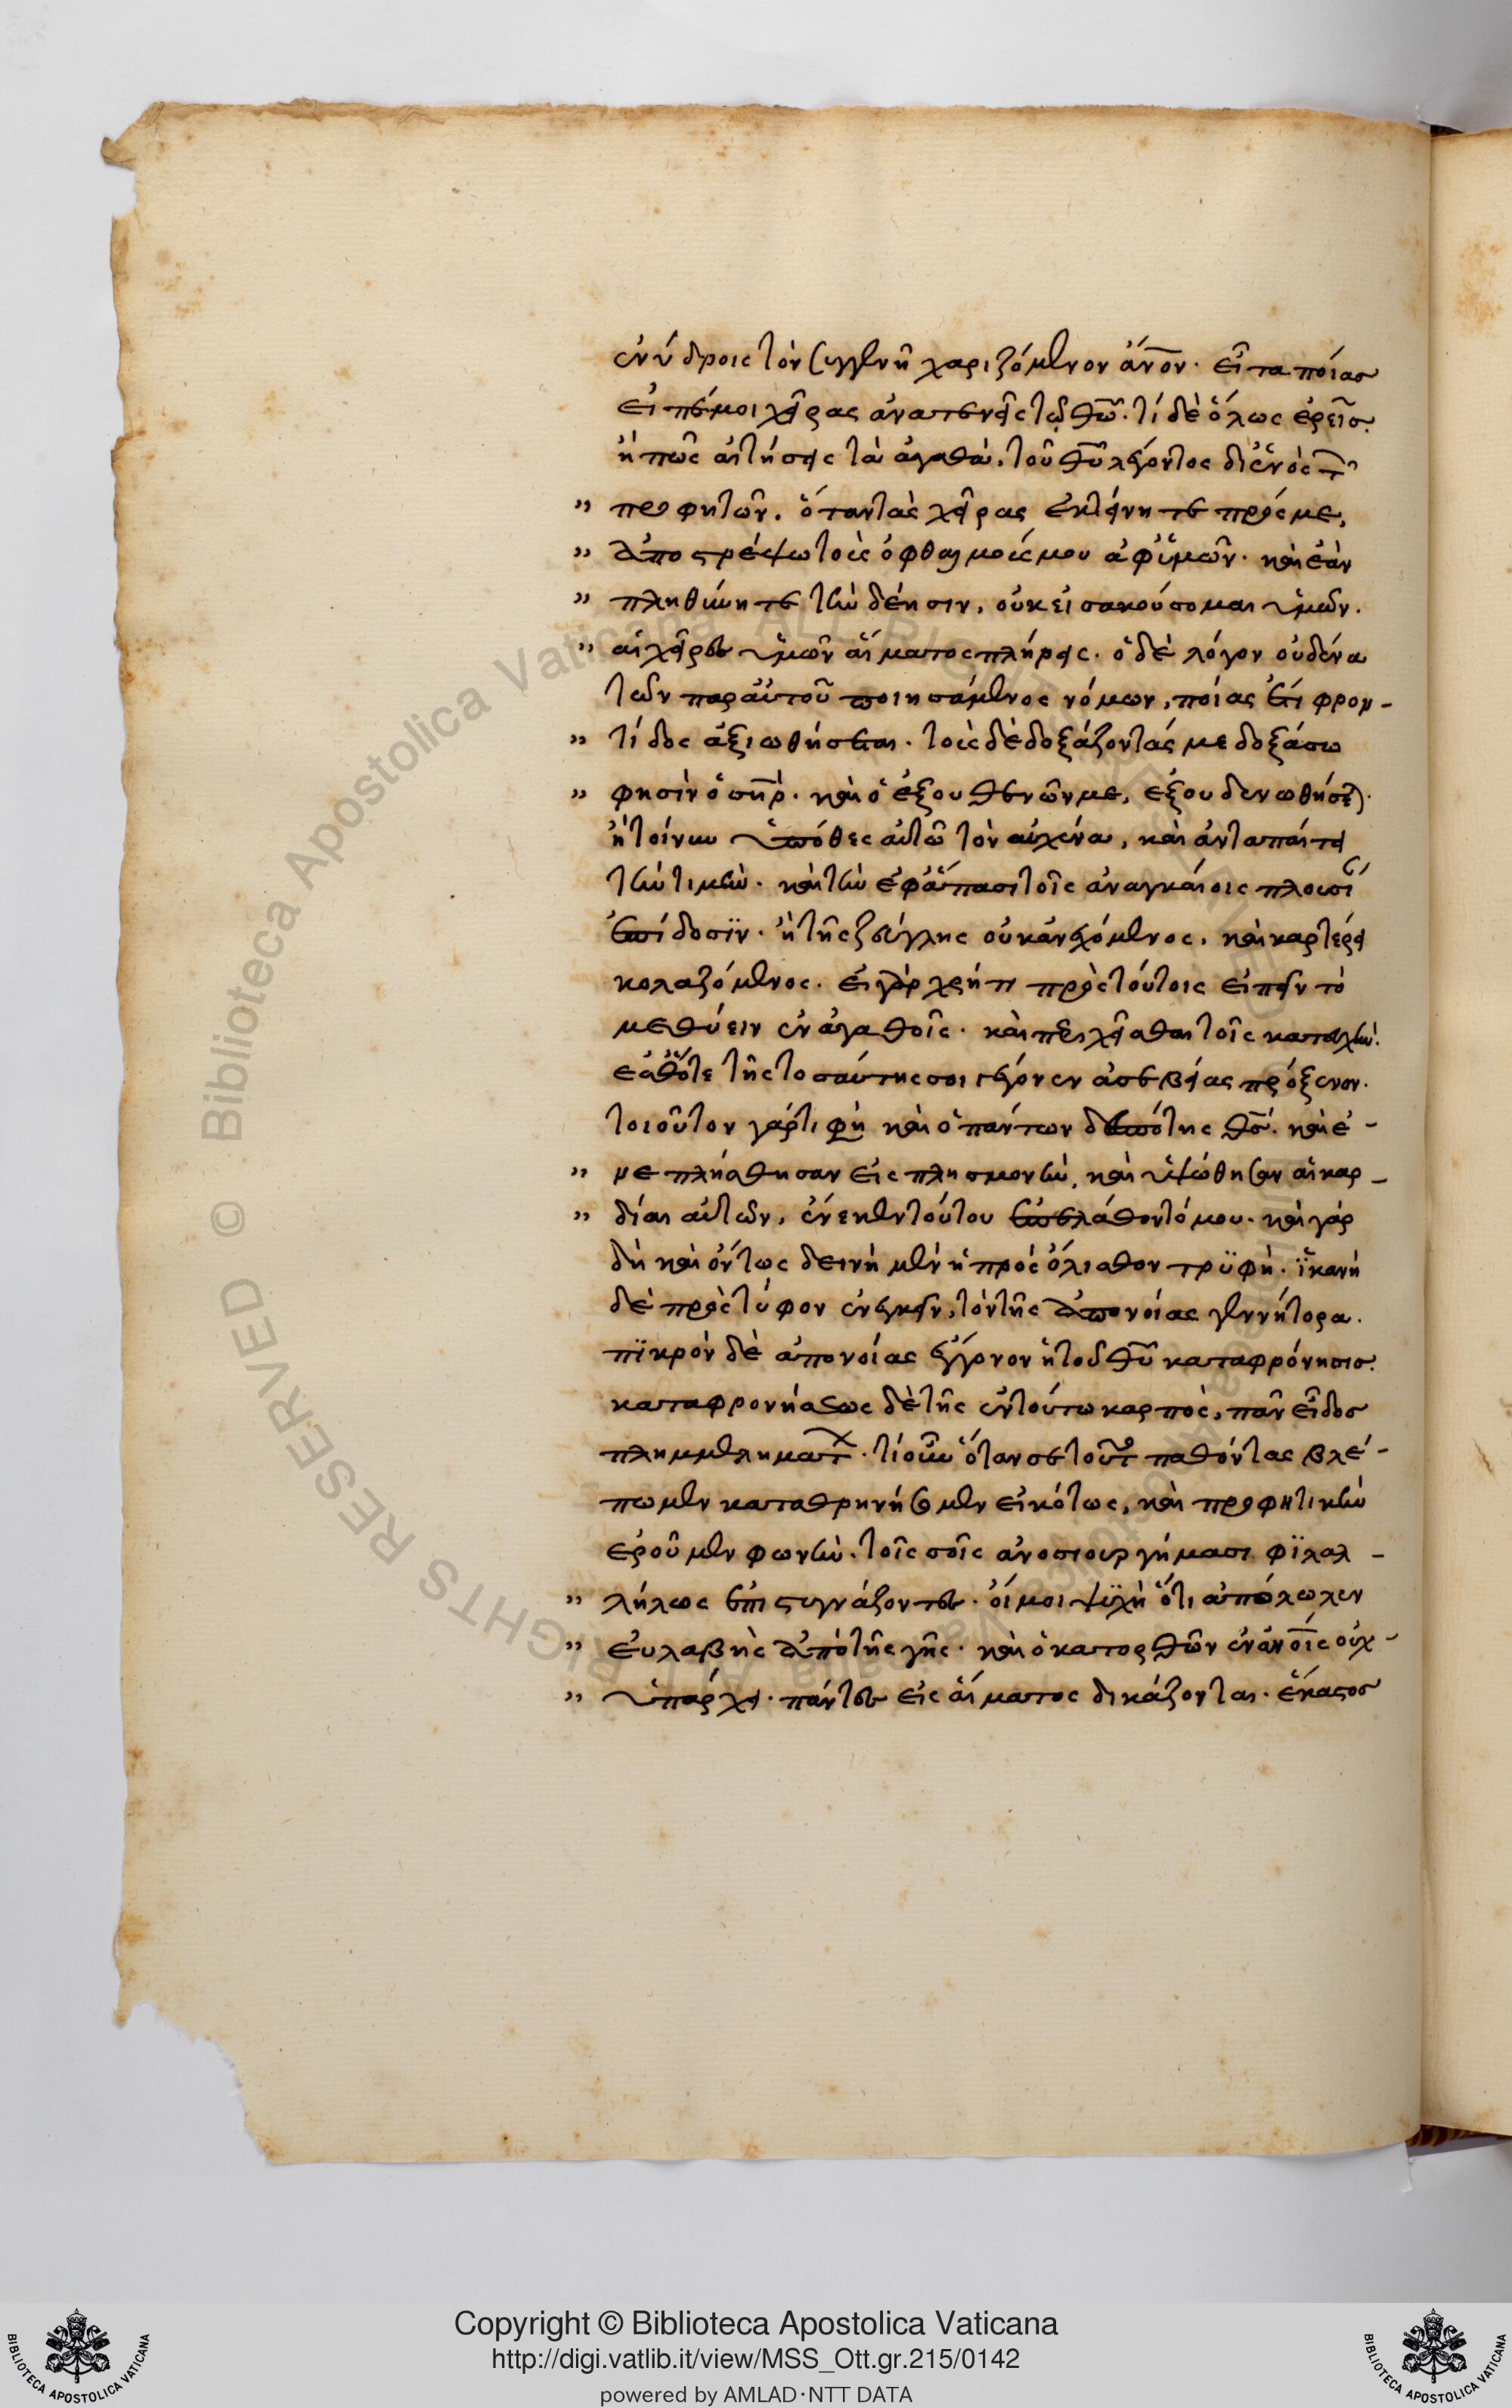 ἐνύδροις τὸν συγγενῆ χαριζόμενον ἄνον. εἶτα ποίας
εἰπέ μοι χεῖρας ἀνατενεῖς τῷ θῶ. τί δὲ ὅλως ἐρεῖς.
ἢ πῶς αἰτήσεις τὰ ἀγαθὰ. τοῦ θῦ λέγοντος δι' ἑνὸς τ
" προφητῶν. ὅταν τὰς χεῖρας ἐκτείνητε πρός με,
" ἀποστρέψω τοὺς ὀφθαλμούς μου ἀφ' ὑμῶν. καὶ ἐὰν
" πληθύνητε τὴν δέησιν, οὐκ εἰσακούσομαι ὑμῶν.
" αἱ χεῖρες ὑμῶν αἵματος πλήρεις. ὁ δὲ λόγον οὐδένα
τῶν παρ' αὐτοῦ ποιησάμενος νόμων, ποίας ἔτι φρον-
" τίδος ἀξιωθήσεται. τοὺς δὲ δοξάζοντάς με δοξάσω
" φησὶν ὁ σηρ. καὶ ὁ ἐξουθενῶν με, ἐξουδενωθήσεται.
ἢ τοίνυν ὑπόθες αὐτῶ τὸν αὐχένα, καὶ ἀνταπαίτει
τὴν τιμὴν. καὶ τὴν ἐφ' ἅπασι τοῖς ἀναγκαίοις πλουσί
ἐπίδοσιν. ἢ τῆς ζεύγλης οὐκ ἀνεχόμενος, καὶ καρτέρει
κολαζόμενος. εἰ γὰρ χρή τι πρὸς τούτοις εἰπεῖν τὸ
μεθύειν ἐν ἀγαθοῖς. καὶ περικεῖσθαι τοῖς κατ' εὐχὴν.
ἔσθ' ὅτε τῆς τοσαύτης σοι γέγονεν ἀσεβείας πρόξενον.
τοιοῦτον γάρ τι φὴ καὶ ὁ πάντων δεσπότης θσ. καὶ ἐ-
" με πλήσθησαν εἰς πλησμονὴν, καὶ ὑψώθησαν αἱ καρ-
" δίαι αὐτῶν, ἕνεκεν τούτου ἐπελάθοντό μου. καὶ γάρ
δὴ καὶ ὄντως δεινὴ μὲν ἡ πρὸς ὄλισθον τρυφὴ. ἱκανὴ
δὲ πρὸς τύφον ἐνεγκεῖν, τὸν τῆς ἀπονοίας γεννήτορα.
πικρὸν δὲ ἀπονοίας ἔγγονον ἡ τοῦ θῦ καταφρόνησις.
καταφρονήσεως δὲ τῆς ἐν τούτω καρπὸς, πᾶν εἶδος
πλημμεληματ. τί οὖν ὅταν σε τοῦτο παθόντας βλέ-
πωμεν καταθρηνήσωμεν εἰκότως, καὶ προφητικὴν
ἐροῦμεν φωνὴν. τοῖς σοῖς ἀνοσιουργήμασι φιλαλ-
" λήλως ἐπιστυγνάζοντες. οἴμοι ψυχὴ ὅτι ἀπόλωλεν
" εὐλαβὴς ἀπὸ τῆς γῆς. καὶ ὁ κατορθῶν ἐν ἀνοῖς οὐχ-
" ὑπάρχει. πάντες εἰς αἵματος δικάζονται. ἕκαστος
Copyright © Biblioteca Apostolica Vaticana
http://digi.vatlib.it/view/MSS_Ott.gr.215/0142
powered by AMLAD·NTT DATA